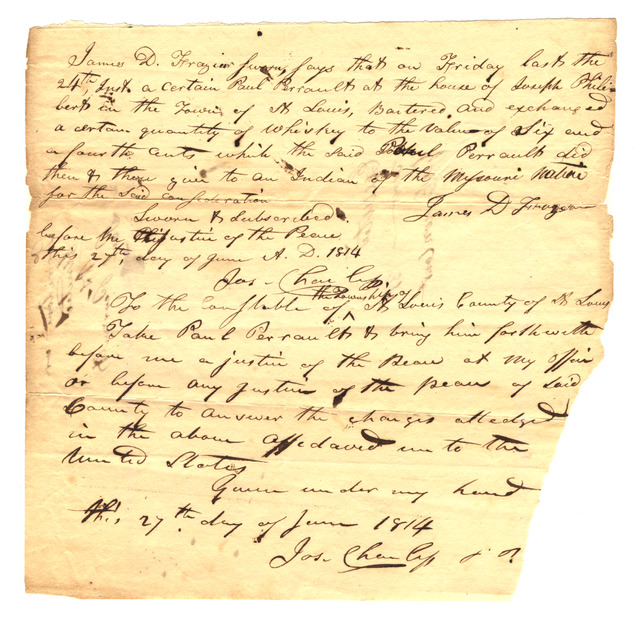 James D. Frazier sworn says that on Friday last the
24th, Inst a certain Paul Perrault at the house of Joseph Phili-
berts in the Town of St Louis, Bartered, and exchanged
a certain quantity of whiskey to the value of Six and
a fourth Cents which the said Paul Perrault did
then & there give to an Indian of the Missouri Nation
for the Said Consideration
Sworn & Subscribed. James D Frazier
before me Justice of the Peace
this 27th, day of June A. D. 1814
Jos. Charless
the Township of
To the Constable of ^ St Louis County of St Louis
Take Paul Perrault & bring him forthwith
before me a justice of the Peace at my office
or before any justice of the peace of Said
County to answer the charges alledged
in the above affedavid to the
United States
Given under my hand
this 27th day of June 1814
Jos. Charless J P.